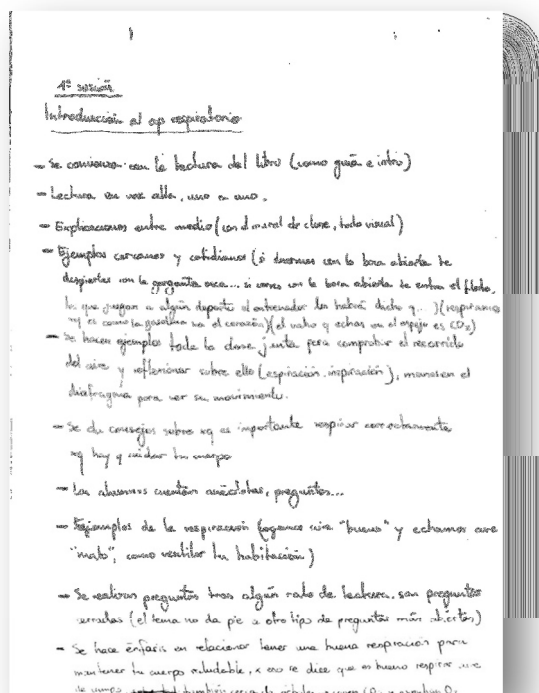 1ª sesión
Introducción al ap respiratorio
- Se comienza con la lectura del libro (como guía e intro)
- Lectura en voz alta, uno a uno.
- Explicaciones entre medio (con el mural de clase, todo visual)
- Ejemplos cercanos y cotidianos (si duermes con la boca abierta te
despiertas con la garganta seca... si corres con la boca abierta te entra el flato,
los que juegan a algún deporte el entrenador les habrá dicho q...) (respiramos
xq es como la gasolina el corazón) (el vaho q echas en el espejo es CO2)
- Se hacen ejemplos toda la clase junta para comprobar el recorrido
del aire y reflexionar sobre ello (espiración, inspiración), manos en el
diafragma para ver su movimiento.
- Se da consejos sobre xq es importante respirar correctamente
xq hay q cuidar tu cuerpo
- Los alumnos cuentan anécdotas, preguntas...
- Ejemplos de la respiración (cogemos aire "bueno" y echamos aire
"malo", como ventilar tu habitación)
- Se realizan preguntas tras algún rato de lectura, son preguntas
cerradas (el tema no da pie a otro tipo de preguntas más abiertas)
- Se hace énfasis en relacionar tener una buena respiración para
mantener tu cuerpo saludable, x eso se dice que es bueno respirar aire
de campo cerca de árboles